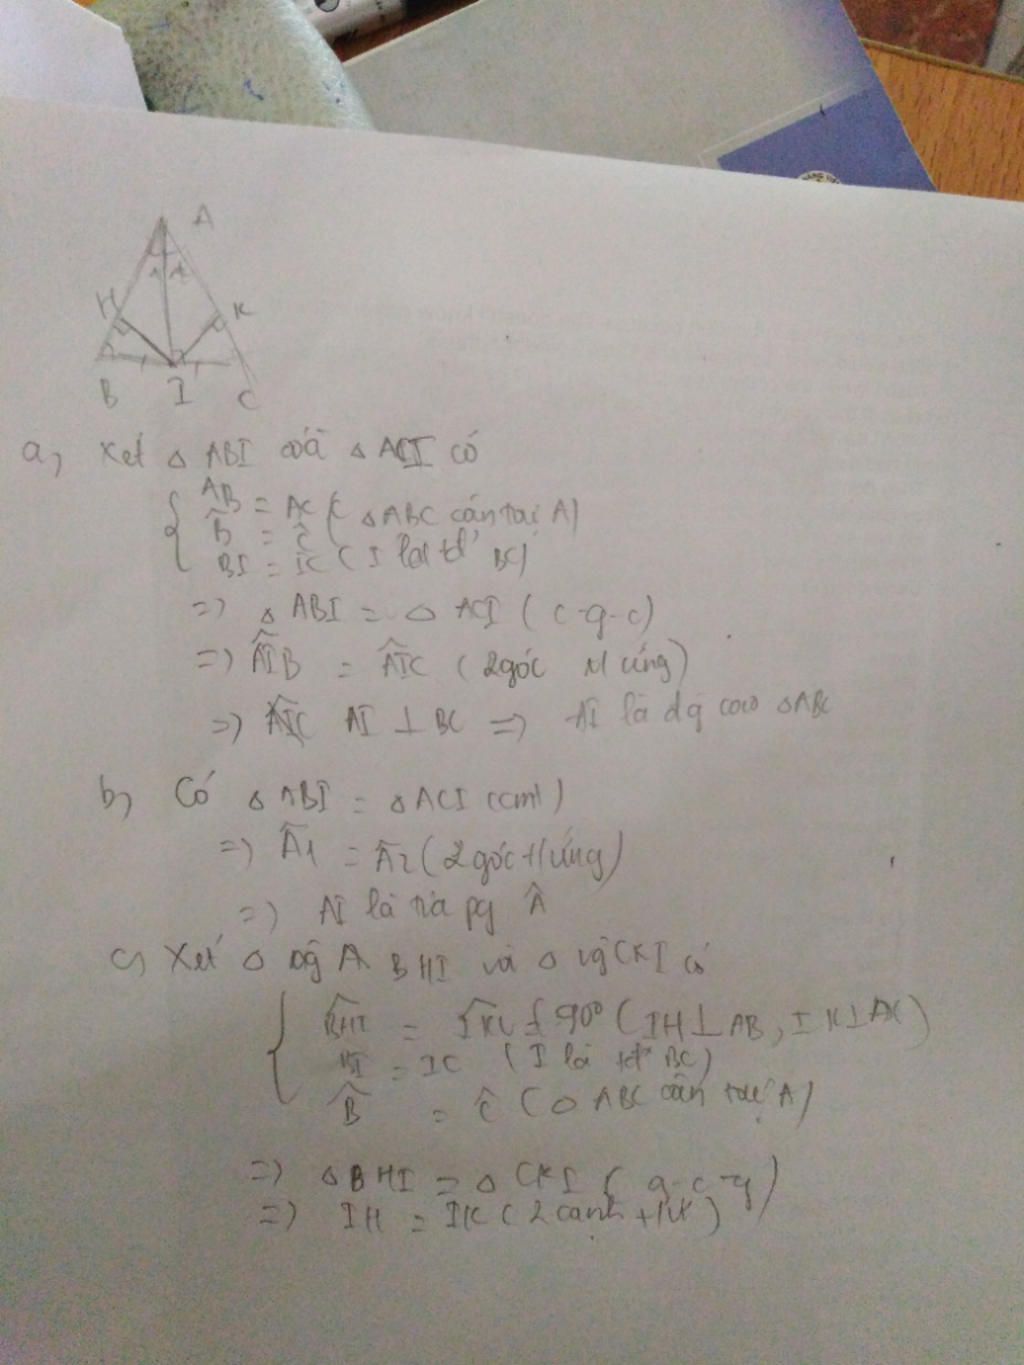 A
H K
B I C
a, Xét △ ABI và △ ACI có
AB = AC ( △ABC cân tại A)
B̂ = Ĉ
BI = IC ( I là tđ BC)
=> △ ABI = △ ACI ( c-g-c)
=> AIB = AIC ( 2 góc t/ứng)
=> AI ⊥ BC => AI là đg cao △ABC
b, Có △ ABI = △ ACI (cmt)
=> Â1 = Â2 ( 2 góc t/ứng)
=> AI là tia pg Â
c, Xét △ vg BHI và △ vg CKI có
BHI = IKC = 90° ( IH ⊥ AB, IK ⊥ AC)
BI = IC ( I là tđ BC)
B̂ = Ĉ ( △ ABC cân tại A)
=> △ BHI = △ CKI ( g-c-g)
=> IH = IK ( 2 cạnh t/ứ)